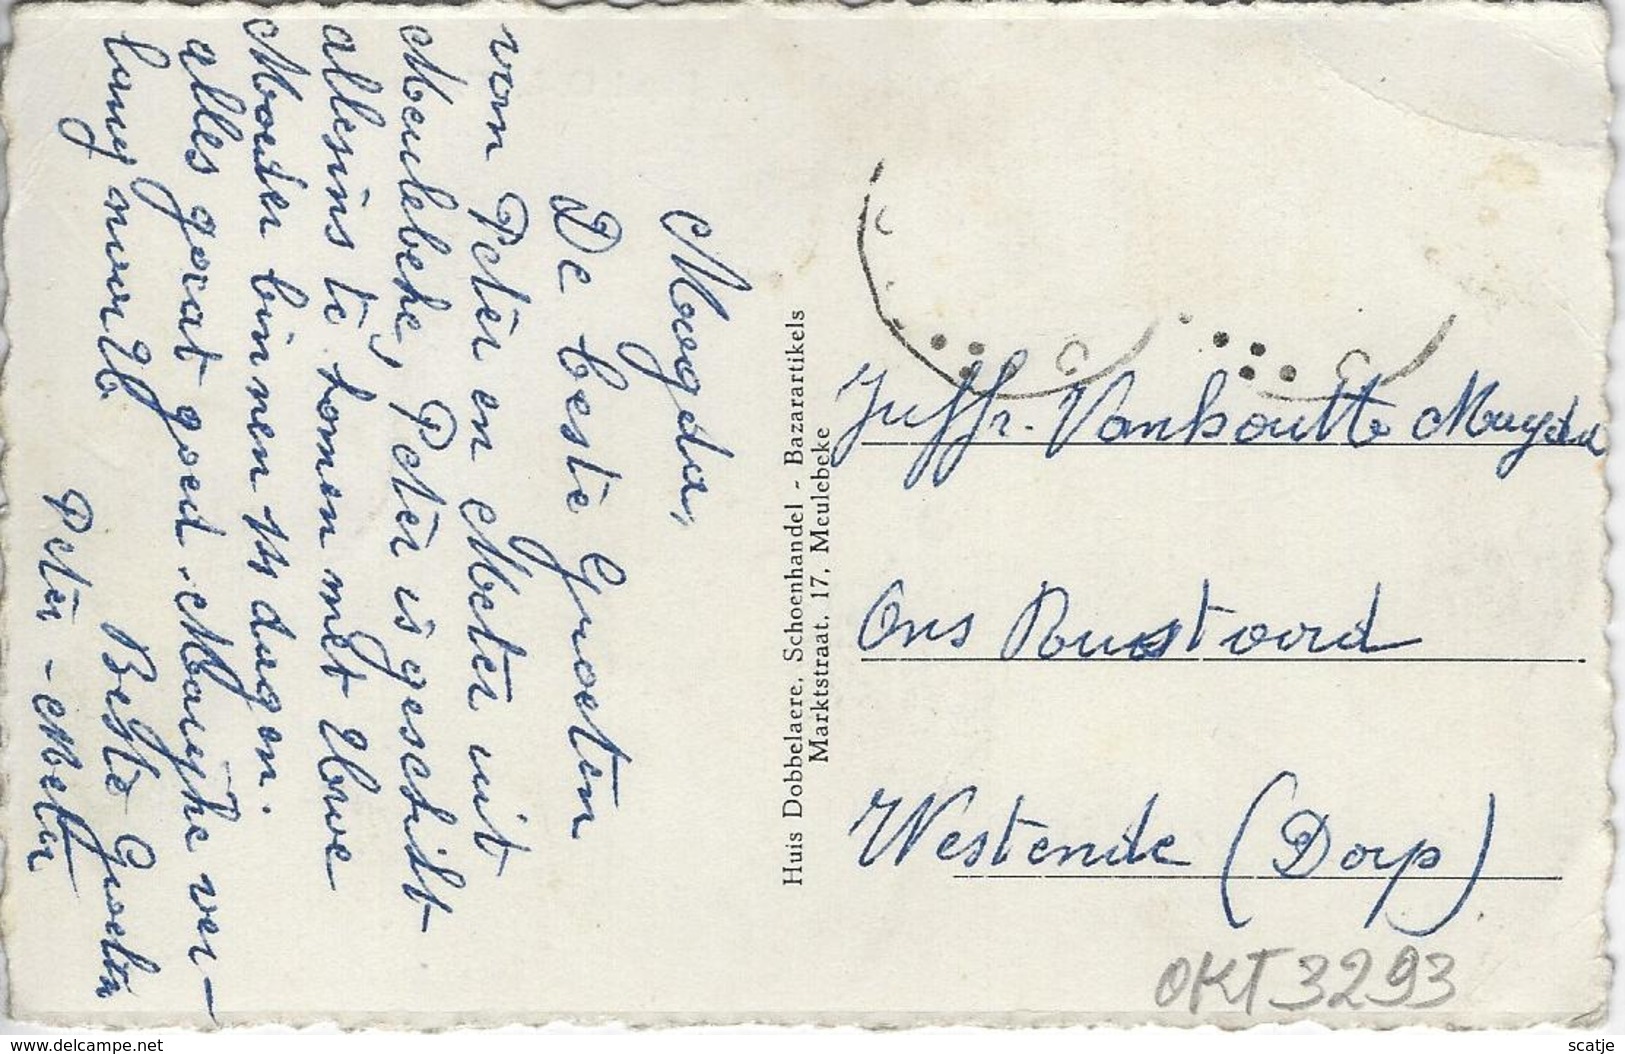 Magda,
De beste Groeten
van Peter en Meter uit
Meulebeke, Peter is geschikt
alleens te komen met Uwe
Moeder binnen 14 dagen.
alles gaat goed. Marijke ver-
lang naar U
Beste Groeten
Peter - Meter
Huis Dobbelaere, Schoenhandel - Bazarartikels
Marktstraat, 17, Meulebeke
Juffr. Vanhoutte Magda
Ons Rustoord
Westende (Dorp)
OKT 3293
www.delcampe.net
scatje